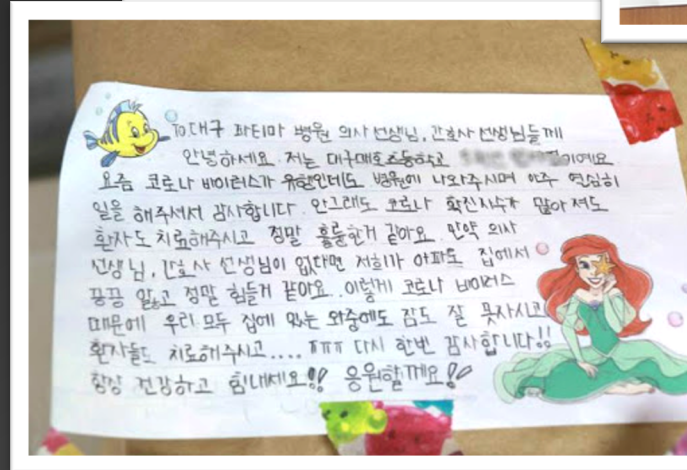 To 대구 파티마 병원 의사 선생님, 간호사 선생님들께
안녕하세요. 저는 대구매호초등학교 이에요
요즘 코로나 바이러스가 유행인데도 병원에 나와주시며 아주 열심히
일을 해주셔서 감사합니다. 안그래도 코로나 확진자수가 많아져도
환자도 치료해주시고 정말 훌륭한거 같아요. 만약 의사
선생님, 간호사 선생님이 없다면 저희가 아파도 집에서
끙끙 앓고 정말 힘들거 같아요.. 이렇게 코로나 바이러스
때문에 우리 모두 집에 있는 와중에도 잠도 잘 못자시고
환자들도 치료해주시고.... ㅠㅠㅠ 다시 한번 감사합니다!!
항상 건강하고 힘내세요!! 응원할께요!!